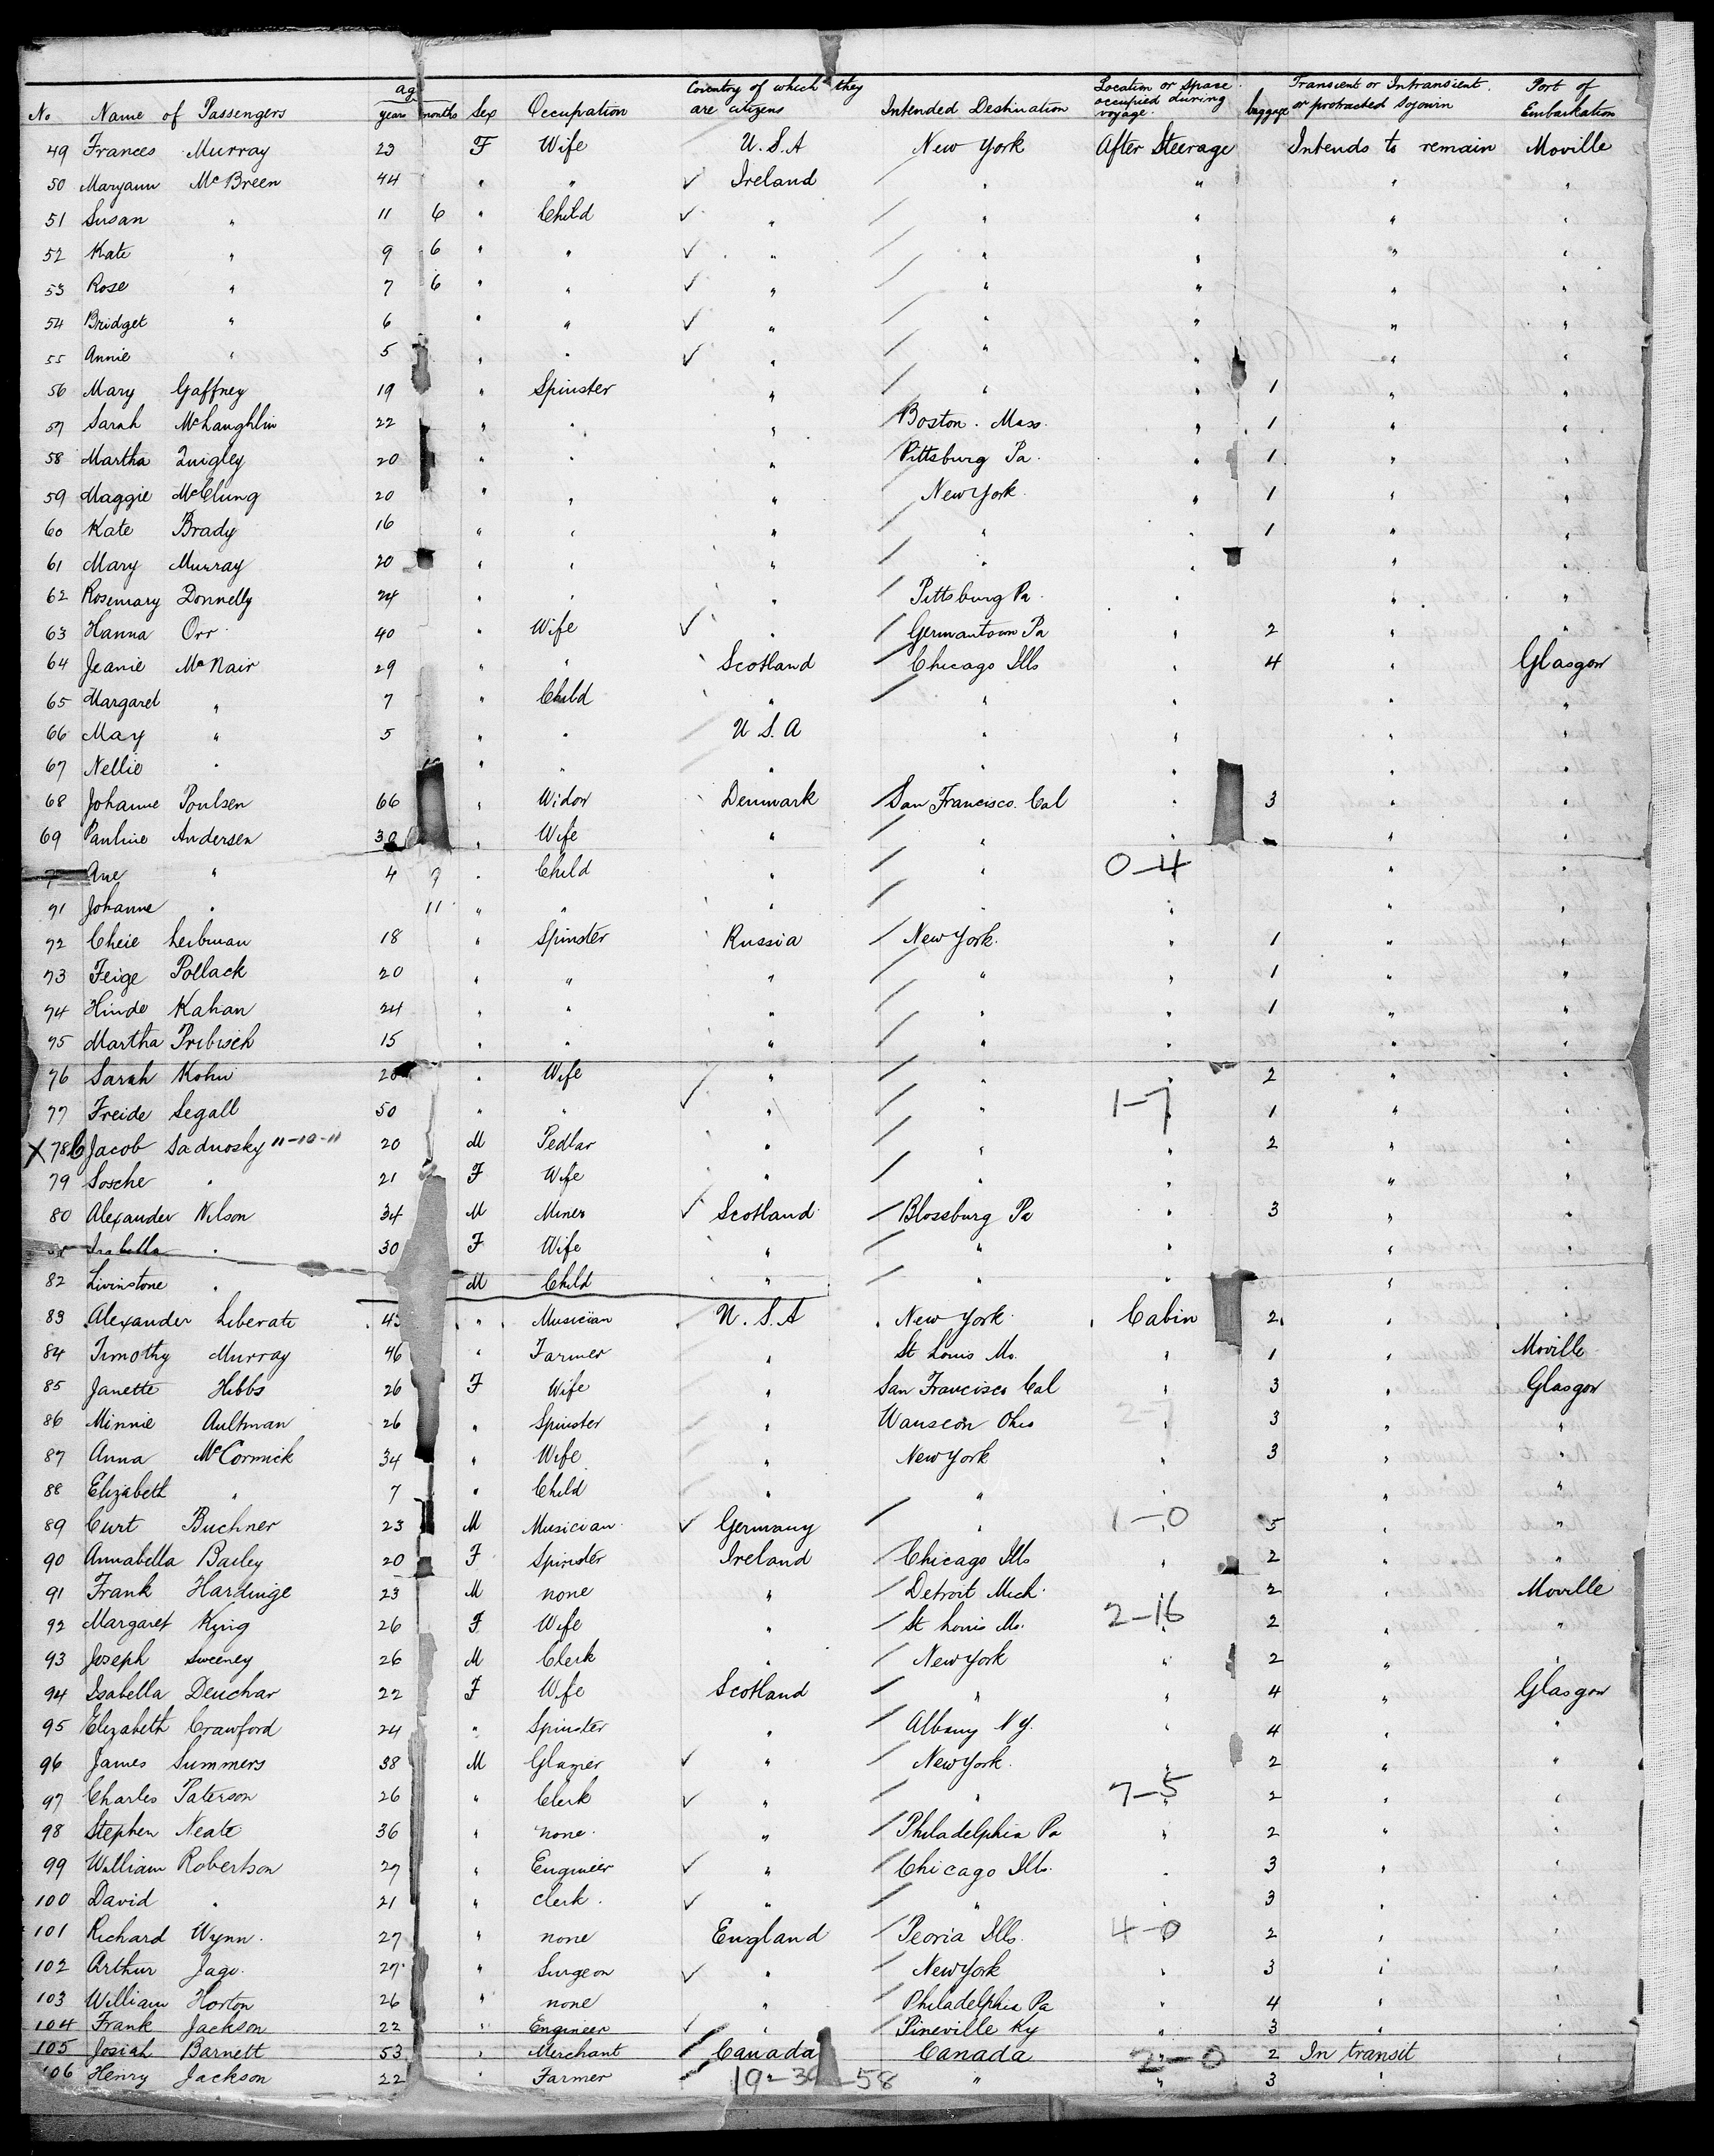 No Name of Passengers Age years months Sex Occupation Country of which they are citizens Intended Destination Location or Space occupied during voyage. baggage Transient or Intransient or protracted Sojourn Port of Embarkation
49 Frances Murray 23 F Wife U.S.A New York After Steerage Intends to remain Moville
50 Maryann McBreen 44 " " ✓ Ireland / " " " "
51 Susan " 11 6 " Child ✓ " / " " " "
52 Kate " 9 6 " " ✓ " / " " " "
53 Rose " 7 6 " " ✓ " / " " " "
54 Bridget " 6 " " ✓ " / " " " "
55 Annie " 5 " " ✓ " / " " " "
56 Mary Gaffney 19 " Spinster " / " " 1 " "
57 Sarah McLaughlin 22 " " " / Boston. Mass. " 1 " "
58 Martha Quigley 20 " " " / Pittsburg Pa. " 1 " "
59 Maggie McClung 20 " " " / New York. " 1 " "
60 Kate Brady 16 " " " / " " 1 " "
61 Mary Murray 20 " " " / " " " "
62 Rosemary Donnelly 24 " " " / Pittsburg Pa. " " "
63 Hanna Orr 40 " Wife ✓ " / Germantown Pa " 2 " "
64 Jeanie McNair 29 " " Scotland / Chicago Ills " 4 " Glasgow
65 Margaret " 7 " Child " / " " " "
66 May " 5 " " U S. A " " " "
67 Nellie " " " " " " " "
68 Johanne Poulsen 66 " Widow Denmark / San Francisco. Cal " 3 " "
69 Pauline Andersen 30 " Wife " / " " " "
Ane " 4 9 " Child " / " 0-4 " "
71 Johanne " 11 " " " / " " " "
72 Cheie Leibman 18 " Spinster Russia / New York. " 1 " "
73 Feige Pollack 20 " " " / " " 1 " "
74 Hinde Kahan 24 " " " / " " 1 " "
75 Martha Pribisch 15 " " " / " " " "
76 Sarah Kohn 20 " Wife " / " " 2 " "
77 Freide Segall 50 " " ✓ " / " 1-7 1 " "
X 78 Jacob Sadnosky 11-10-11 20 M Pedlar " / " " 2 " "
79 Sosche " 21 F Wife " / " " " "
80 Alexander Nilson 34 M Miner ✓ Scotland / Blossburg Pa " 3 " "
Isabella " 30 F Wife " / " " " "
82 Livinstone " M Child " / " " " "
83 Alexander Liberati " Musician U.S.A New York Cabin 2 " "
84 Timothy Murray 46 " Farmer " St Louis Mo. " 1 " Moville
85 Janette Hibbs 26 F Wife " San Francisco Cal " 3 " Glasgow
86 Minnie Aultman 26 " Spinster " Wauseon Ohio 2-7 3 " "
87 Anna McCormick 34 " Wife " New York " 3 " "
88 Elizabeth " 7 " Child " " " " "
89 Curt Buchner 23 M Musician ✓ Germany / " 1-0 5 " "
90 Annabella Bailey 20 F Spinster Ireland / Chicago Ills " 2 " "
91 Frank Hardinge 23 M none " / Detroit Mich. 2 " Moville
92 Margaret King 26 F Wife " / St Louis Mo. 2-16 2 " "
93 Joseph Sweeney 26 M Clerk " / New York " 2 " "
94 Isabella Deuchar 22 F Wife Scotland / " " 4 " Glasgow
95 Elizabeth Crawford 24 " Spinster " / Albany N.Y. " 4 " "
96 James Summers 38 M Glazier ✓ " / New York. " 2 " "
97 Charles Paterson 26 " Clerk ✓ " / " 7-5 2 " "
98 Stephen Neate 36 " none. " / Philadelphia Pa " 2 " "
99 William Robertson 27 " Engineer ✓ " / Chicago Ills. " 3 " "
100 David " 21 " Clerk. ✓ " / " " 3 " "
101 Richard Wynn. 27 " none England / Peoria Ills. 4-0 2 " "
102 Arthur Jago. 27 " Surgeon ✓ " / New York " 3 " "
103 William Horton 26 " none " / Philadelphia Pa " 4 " "
104 Frank Jackson 22 " Engineer ✓ " / Pineville Ky " 3 " "
105 Josiah Barnett 53 " Merchant / Canada Canada 2-0 2 In transit "
106 Henry Jackson 22 " Farmer " " 3 " "